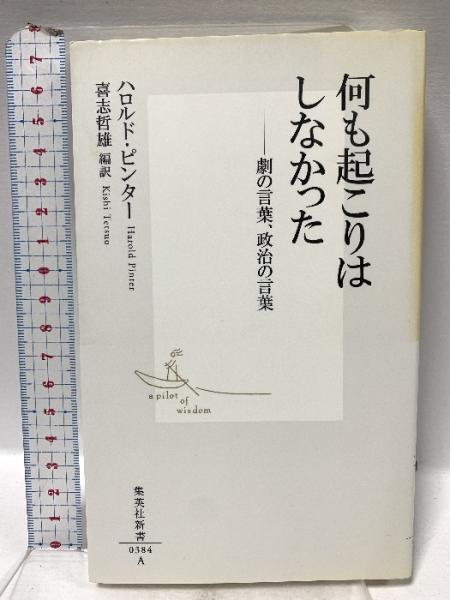 何も起こりは
しなかった
──劇の言葉、政治の言葉
ハロルド・ピンター Harold Pinter
喜志哲雄 編訳 Kishi Tetsuo
a pilot
of
wisdom
集英社新書
0384
A
8
7
6
5
4
3
2
1
0
9
8
7
6
5
4
3
2
1